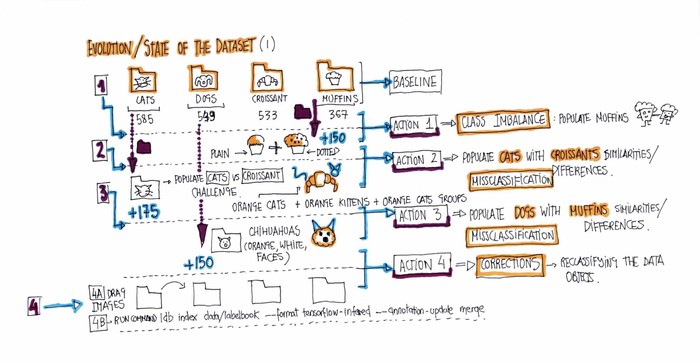 EVOLUTION/STATE OF THE DATASET (1)
1
CATS
DOGS
CROISSANT
MUFFINS
BASELINE
585
549
533
367
ACTION 1
CLASS IMBALANCE : POPULATE MUFFINS
+150
2
PLAIN
+
DOTTED
ACTION 2
POPULATE CATS WITH CROISSANTS SIMILARITIES/
DIFFERENCES.
MISSCLASSIFICATION
3
POPULATE CATS VS CROISSANT
CHALLENGE.
ORANGE CATS + ORANGE KITTENS + ORANGE CATS GROUPS
+175
ACTION 3
POPULATE DOGS WITH MUFFINS SIMILARITIES/
DIFFERENCES.
MISSCLASSIFICATION
CHIHUAHUAS
(ORANGE, WHITE,
FACES)
+150
ACTION 4
CORRECTIONS
RECLASSIFYING THE DATA
OBJECTS.
4
4A DRAG
IMAGES
4B RUN COMMAND ldb index data/labelbook —format tensorflow-infered —annotation-update merge